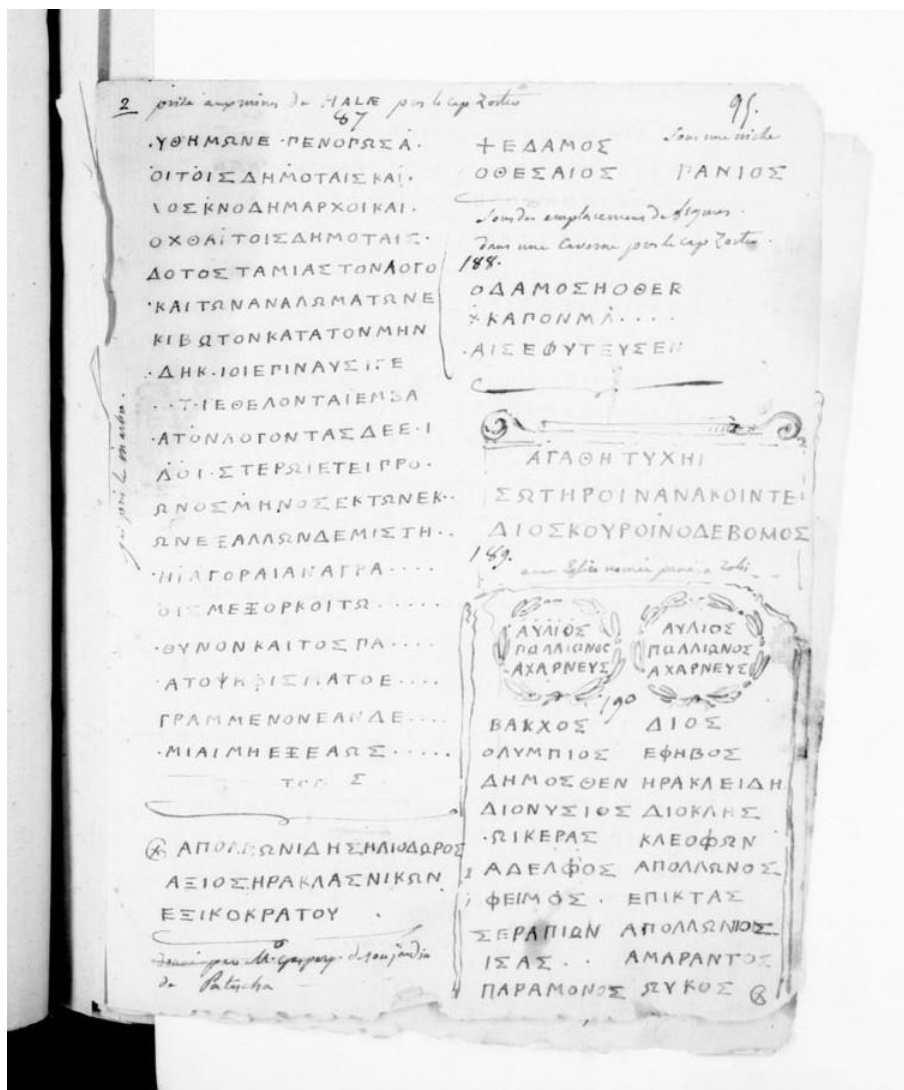 2 près du cap Zoster
HALÆ
87
95.
·ΥΘΗΜΩΝΕ·ΠΕΝΟΓΩΣΑ·
ΟΙΤΟΙΣΔΗΜΟΤΑΙΣΚΑΙ·
ΛΟΣΚΝΟΔΗΜΑΡΧΟΙΚΑΙ·
ΟΧΘΑΙΤΟΙΣΔΗΜΟΤΑΙΣ·
ΔΟΤΟΣΤΑΜΙΑΣΤΟΝΛΟΓΟ
·ΚΑΙΤΩΝΑΝΑΛΩΜΑΤΩΝΕ
ΚΙΒΩΤΟΝΚΑΤΑΤΟΝΜΗΝ
·ΔΗΚ·ΙΟΙΕΠΙΝΑΥΣΙΓΕ
··Τ·ΙΕΘΕΛΟΝΤΑΙΕΜΒΑ
·ΑΤΟΝΛΟΓΟΝΤΑΣΔΕΕ·Ι
ΔΟΙ·ΣΤΕΡΩΙΕΤΕΙΠΡΟ·
ΩΝΟΣΜΗΝΟΣΕΚΤΩΝΕΚ··
ΩΝΕΞΑΛΛΩΝΔΕΜΙΣΤΗ··
·ΗΙΑΓΟΡΑΙΑΝΑΓΡΑ····
ΟΙΣΜΕΞΟΡΚΟΙΤΩ·····
·ΘΥΝΟΝΚΑΙΤΟΣΠΑ····
·ΑΤΟΨΗΦΙΣΜΑΤΟΕ····
ΓΡΑΜΜΕΝΟΝΕΑΝΔΕ····
·ΜΙΑΙΜΗΕΞΕΑΩΣ·····
ΑΠΟΛΛΩΝΙΔΗΣΗΛΙΟΔΩΡΟΣ
ΑΞΙΟΣΗΡΑΚΛΑΣΝΙΚΩΝ
ΕΞΙΚΟΚΡΑΤΟΥ ·
de son jardin
de Patissia
Sous une niche
+ΕΔΑΜΟΣ
ΟΘΕΣΑΙΟΣ ΓΑΝΙΟΣ
Sous des emplacemens de figures.
dans une Caverne près le cap Zoster.
188.
ΟΔΑΜΟΣΗΟΘΕR
ΧΚΑΠΟΝΜΑ····
·ΑΙΣΕΦΥΤΕΥΣΕΝ
ΑΓΑΘΗ ΤΥΧΗΙ
ΣΩΤΗΡΟΙΝΑΝΑΚΟΙΝΤΕ
ΔΙΟΣΚΟΥΡΟΙΝΟΔΕΒΟΜΟΣ
189.
ΑΥΛΙΟΣ ΑΥΛΙΟΣ
ΠωΛΛΙωΝΟΣ ΠωΛΛΙωΝΟΣ
ΑΧΑΡΝΕΥΣ ΑΧΑΡΝΕΥΣ
190
ΒΑΚΧΟΣ ΔΙΟΣ
ΟΛΥΜΠΙΟΣ ΕΦΗΒΟΣ
ΔΗΜΟΣΘΕΝ ΗΡΑΚΛΕΙΔΗ
ΔΙΟΝΥΣΙΟΣ ΔΙΟΚΛΗΣ
·ΩΙΚΕΡΑΣ ΚΛΕΟΦΩΝ
ΑΔΕΛΦΟΣ ΑΠΟΛΛΩΝΟΣ
ΦΕΙΜΟΣ · ΕΠΙΚΤΑΣ
ΣΕΡΑΠΙΩΝ ΑΠΟΛΛΩΝΙΟΣ
ΙΣΑΣ·· ΑΜΑΡΑΝΤΟΣ
ΠΑΡΑΜΟΝΟΣ ΩΥΚΟΣ